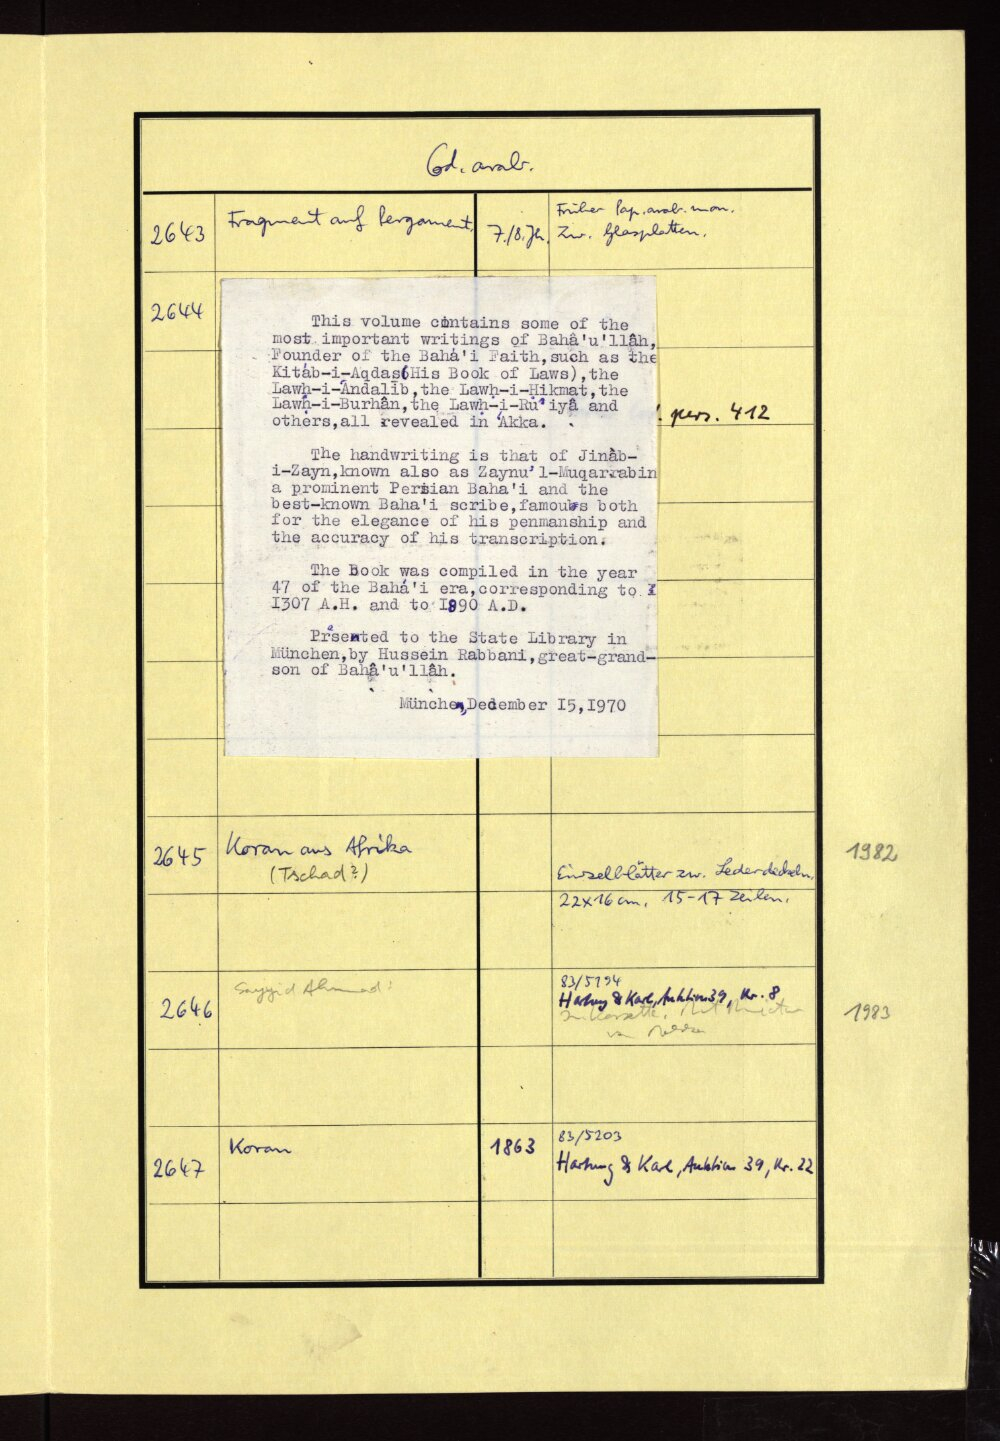 Cod. arab.
2643 Fragment auf Pergament. 7./8. Jh. Früher Pap. arab. mon.
Zw. Glasplatten.
2644
This volume contains some of the
most important writings of Bahâ'u'llâh,
Founder of the Bahá'i Faith,such as the
Kitáb-i-Aqdas(His Book of Laws),the
Lawḥ-i-Ándalîb,the Lawḥ-i-Ḥikmat,the
Lawḥ-i-Burhân,the Lawḥ-i-Ru'iyâ and
others,all revealed in 'Akka.
. pers. 412
The handwriting is that of Jinâb-
i-Zayn,known also as Zaynu'l-Muqarrabin
a prominent Persian Baha'i and the
best-known Baha'i scribe,famous both
for the elegance of his penmanship and
the accuracy of his transcription.
The Book was compiled in the year
47 of the Bahá'i era,corresponding to
I307 A.H. and to I890 A.D.
Présented to the State Library in
München,by Hussein Rabbani,great-grand-
son of Bahâ'u'llâh.
München,December I5,I970
2645 Koran aus Afrika
(Tschad?)
Einzelblätter zw. Lederdeckeln.
22x16 cm. 15-17 Zeilen.
1982
2646 Sayyid Ahmad:
83/5194
Hartung & Karl, Auktion 39, Nr. 8
1983
2647 Koran 1863 83/5203
Hartung & Karl, Auktion 39, Nr. 22